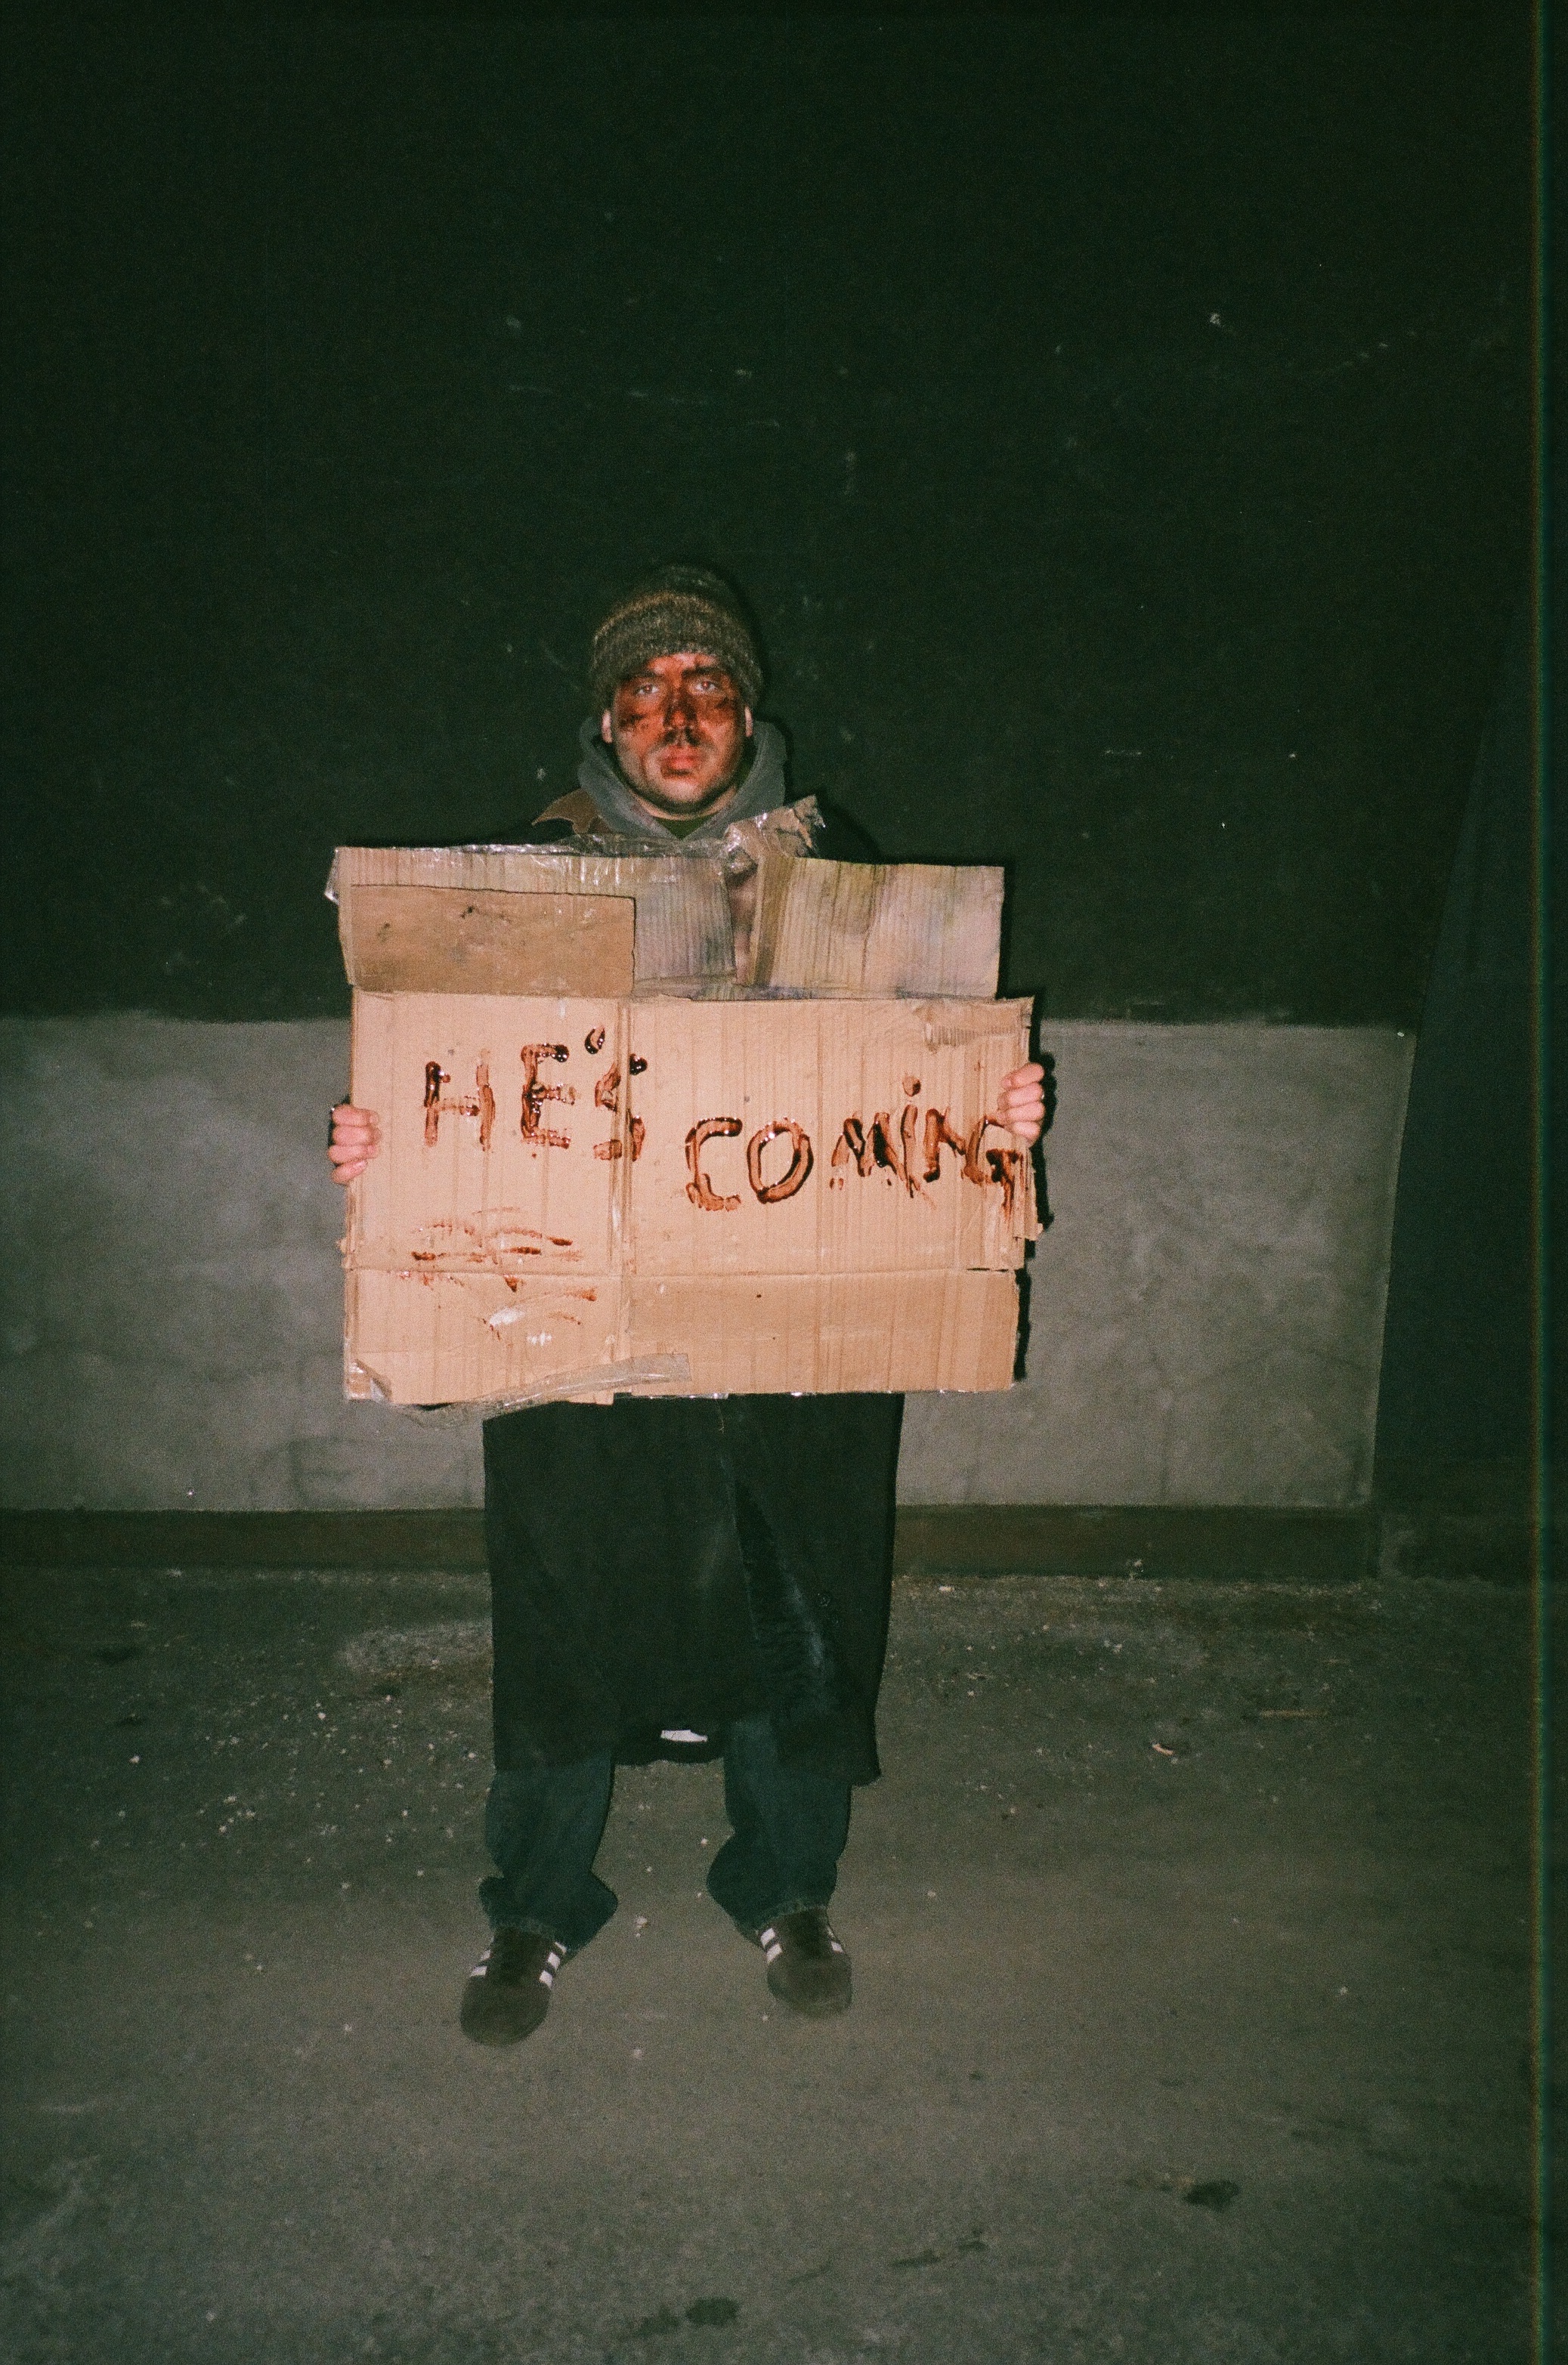 HE'S COMiNG